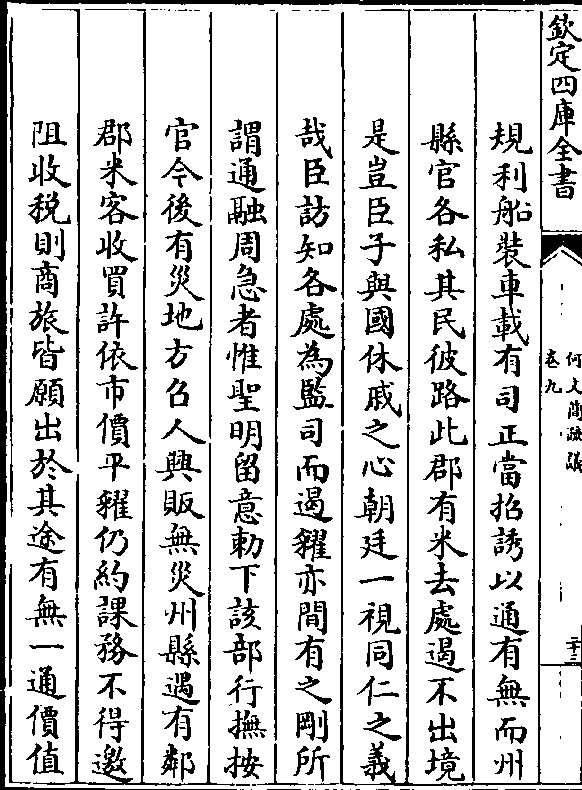 欽定四庫全書
何文簡疏議
卷九
二十三
規利船裝車載有司正當招誘以通有無而州
縣官各私其民彼路此郡有米去處遏不出境
是豈臣子與國休戚之心朝廷一視同仁之義
哉臣訪知各處為監司而遏糴亦間有之剛所
謂通融周急者惟聖明留意勅下該部行撫按
官令後有災地方召人興販無災州縣遇有鄰
郡米客收買許依市價平糴仍約課務不得邀
阻收税則商旅皆願出於其途有無一通價值